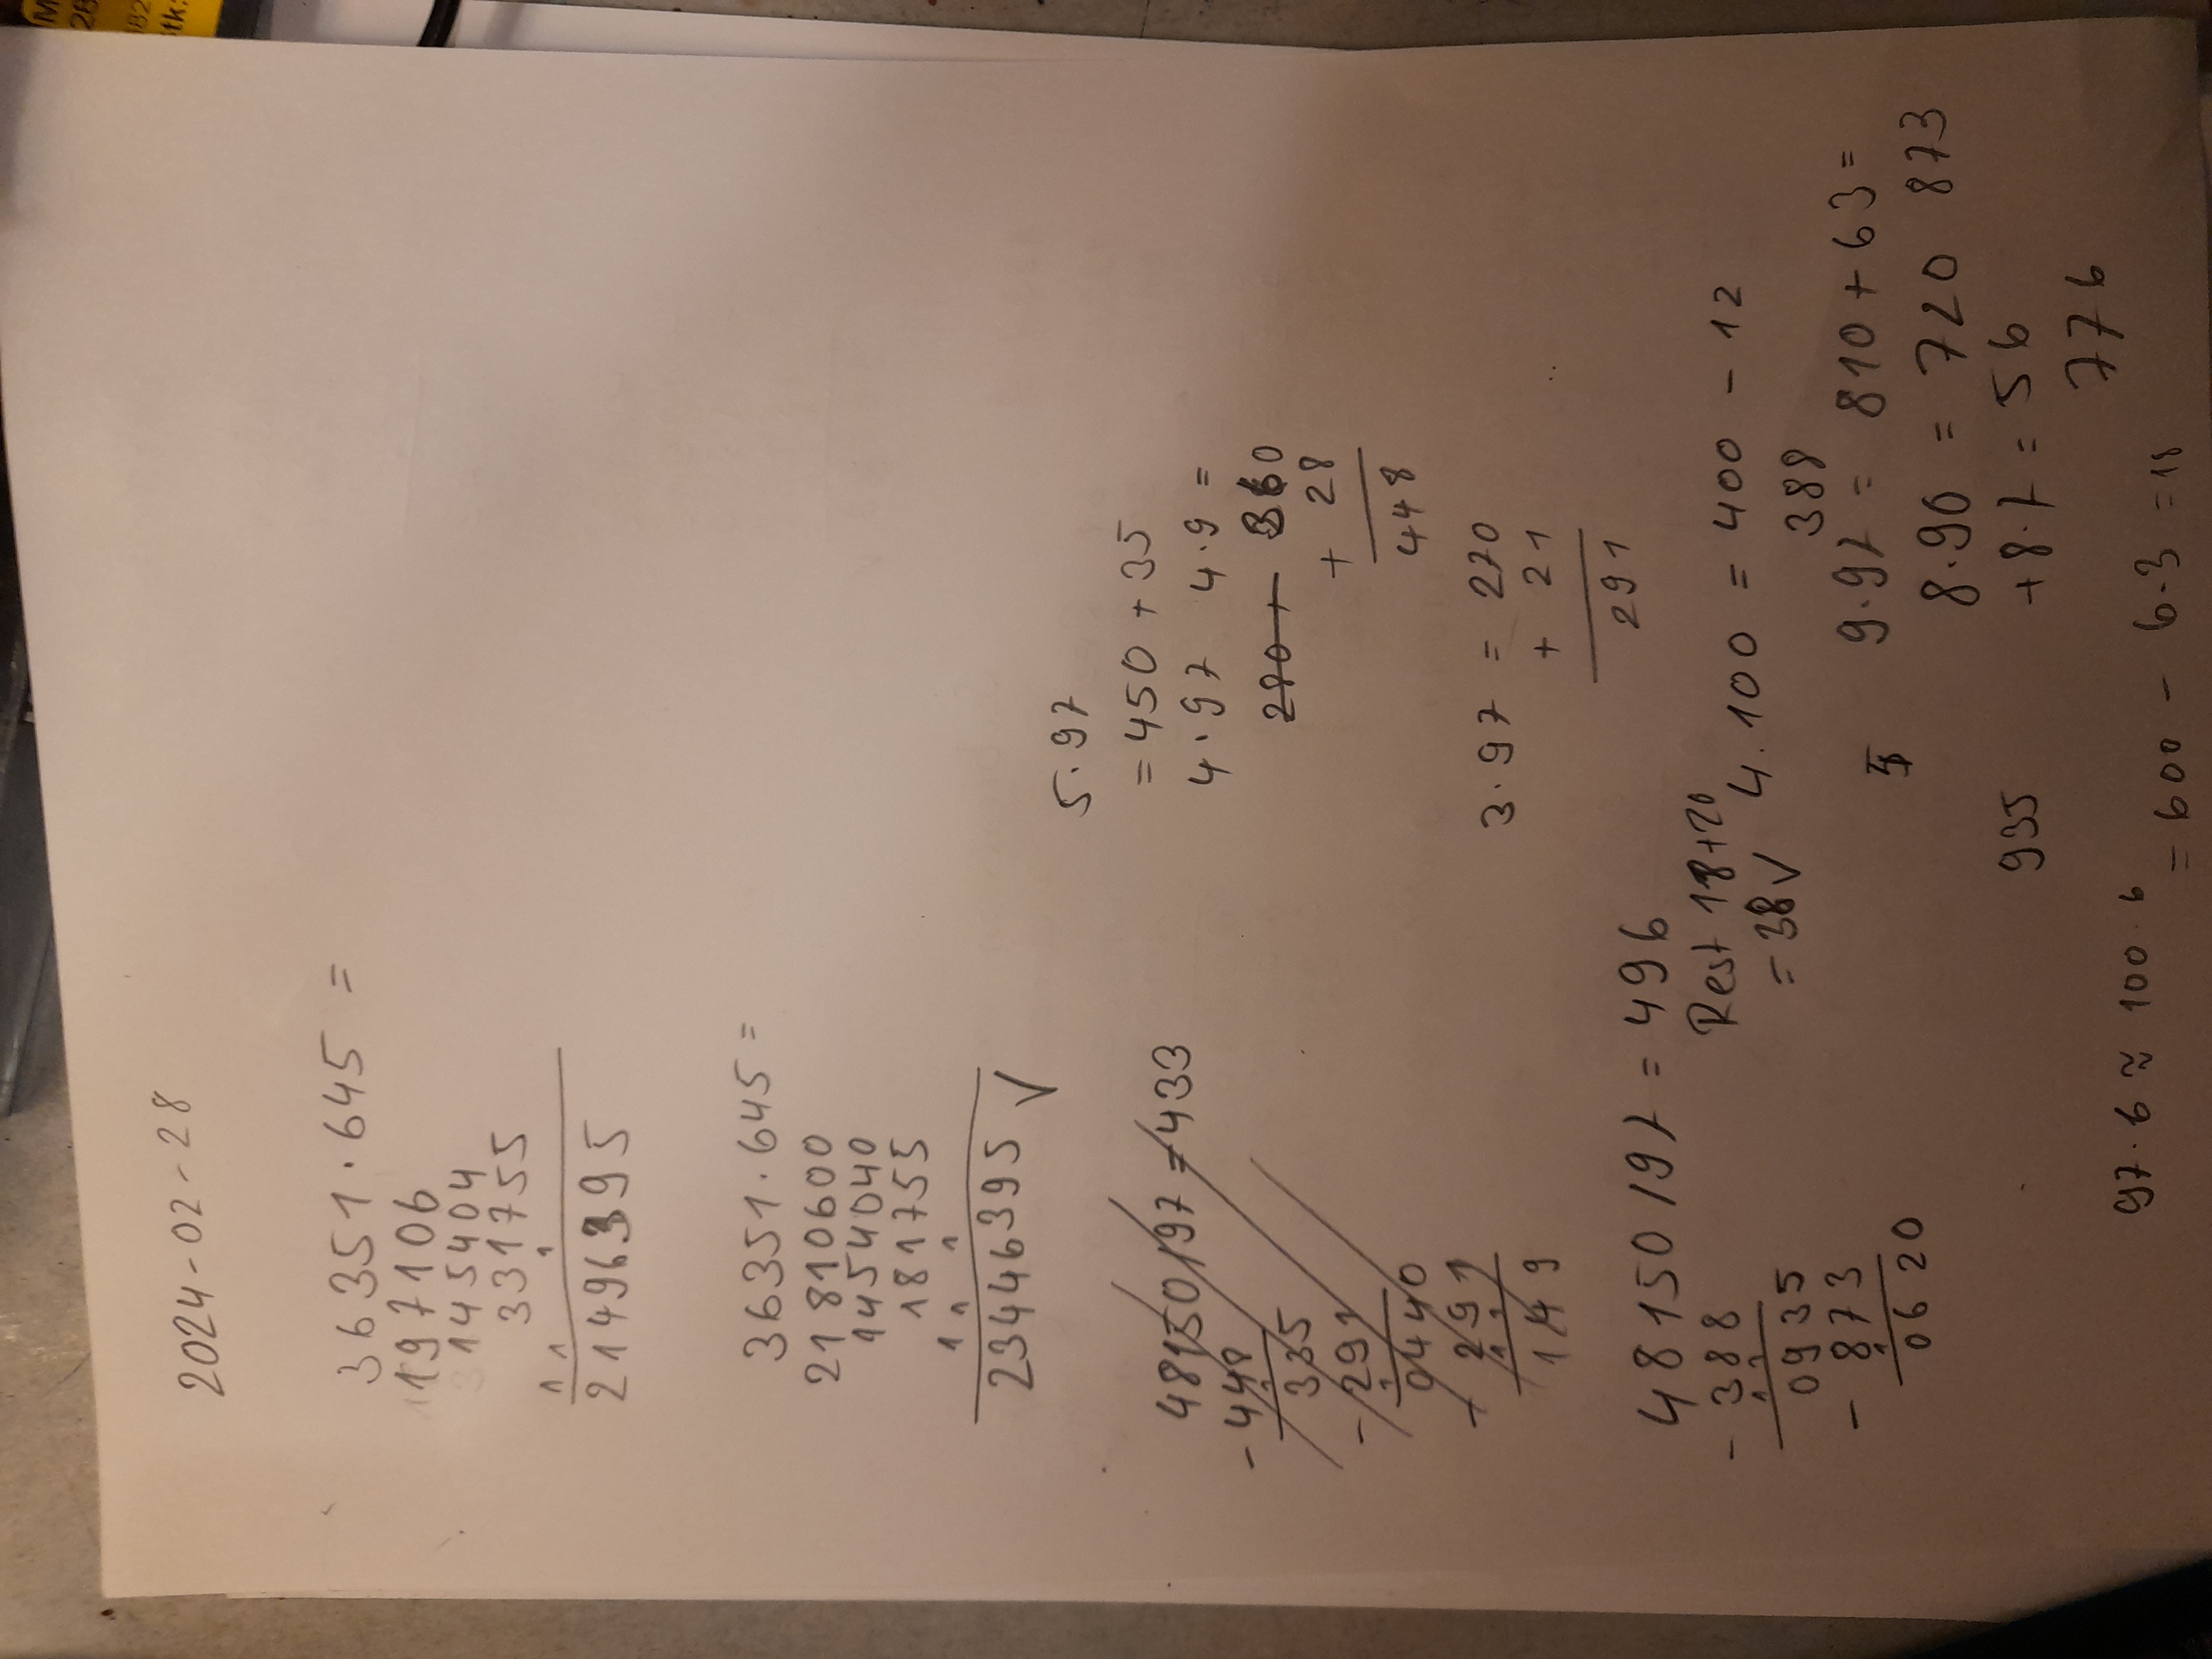 2024-02-28
36351 · 645 =
197106
145404
331755
1 1 1
21496395
36351 · 645 =
21810600
1454040
181755
1 1 1
23446395 √
48150/97 = 433
- 448
335
- 291
0440
- 291
149
5 · 97
= 450 + 35
4 · 97 4 · 9 =
270 + 360
+ 28
448
3 · 97 = 270
+ 21
291
48150/97 = 496
- 388
0935
- 873
0620
Rest 18+20
= 38 √
4 · 100 = 400 - 12
388
9 · 97 = 810 + 63 =
873
8 · 90 = 720
+ 8 · 7 = 56
776
935
97 · 6 ≈ 100 · 6
= 600 - 6 · 3 = 18